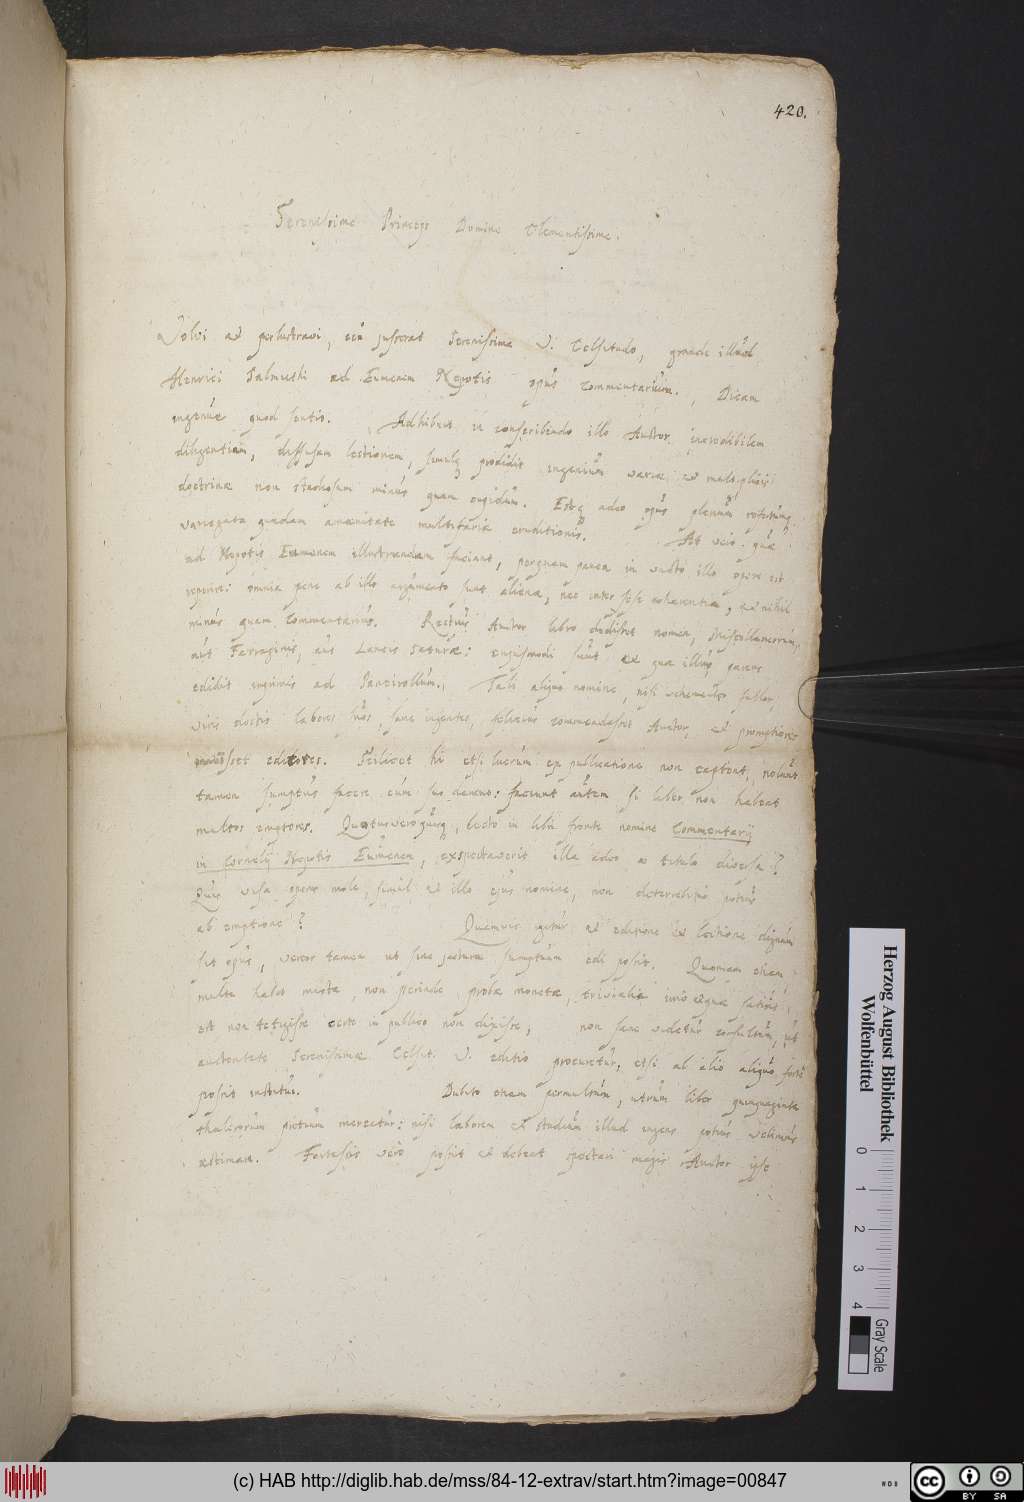 420.
Serenissime Princeps Domine Clementissime.
Volvi et perlustravi, ceu jusserat Serenissima V. Celsitudo, grande illud
Henrici Salmuthi ad Eumenem Nepotis opus commentarium. Dicam
ingenue quod sentio. Adhibuit in conscribendo illo Auctor incredibilem
diligentiam, diffusam lectionem, simulq prodidit ingenium variae et multiplicis
doctrinae non studiosum minus quam cupidum. Estq adeo opus plenum refertumq
variegata quadam amoenitate multifariae eruditionis. At vero quae
ad Nepotis Eumenem illustrandum faciant, perquam pauca in vasto illo opere est
reperire: omnia pene ab illo argumento sunt aliena, nec inter sese cohaerentia, et nihil
minus quam commentarius. Rectius Auctor libro dedisset nomen, Miscellaneorum,
aut Farraginis, aut Lancis Saturae: cujusmodi sunt et quae illius parens
edidit inprimis ad Pancirollum. Tali aliquo nomine, nisi vehementer fallor,
viris doctis labores suos, sane ingentes, felicius commendasset Auctor, et promptiores
editores. Scilicet hi etsi lucrum ex publicatione non captent, nolunt
tamen sumptus facere cum suo damno: faciunt autem si liber non habeat
multos emptores. Quotus vero quisq, lecto in libri fronte nomine Commentarij
in Cornelij Nepotis Eumenem, exspectaverit illa adeo a titulo diversa?
Quis visa operis mole, simul et illo ejus nomine, non deterrebitur potius
ab emptione? Quamvis igitur et editione et lectione dignum
sit opus, vereor tamen ut sine jactura sumptuum edi possit. Quoniam etiam
multa habet mista, non perinde probae monetae, trivialia imo et quae satius
est non tetigisse certe in publico non dixisse, non sane videtur consultum, ut
auctoritate Serenissimae Celsit. V. editio procuretur, etsi ab alio aliquo forte
possit institui. Dubito etiam permultum, utrum liber quinquaginta
thalerorum pretium mereatur: nisi laborem et studium illud ingens potius velimus
aestimare. Fortassis vero possit et debeat spectari magis Auctor ipse
Herzog August Bibliothek
Wolfenbüttel
0 1 2 3 4
Gray Scale
(c) HAB http://diglib.hab.de/mss/84-12-extrav/start.htm?image=00847
WDB
cc BY SA